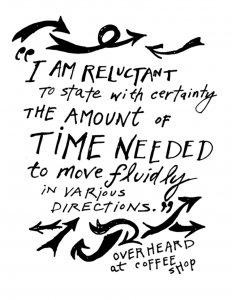 “I AM RELUCTANT
TO state with certainty
THE AMOUNT OF
TIME NEEDED
to move fluidly
IN VARIOUS
DIRECTIONS.”
OVERHEARD
at COFFEE
SHOP